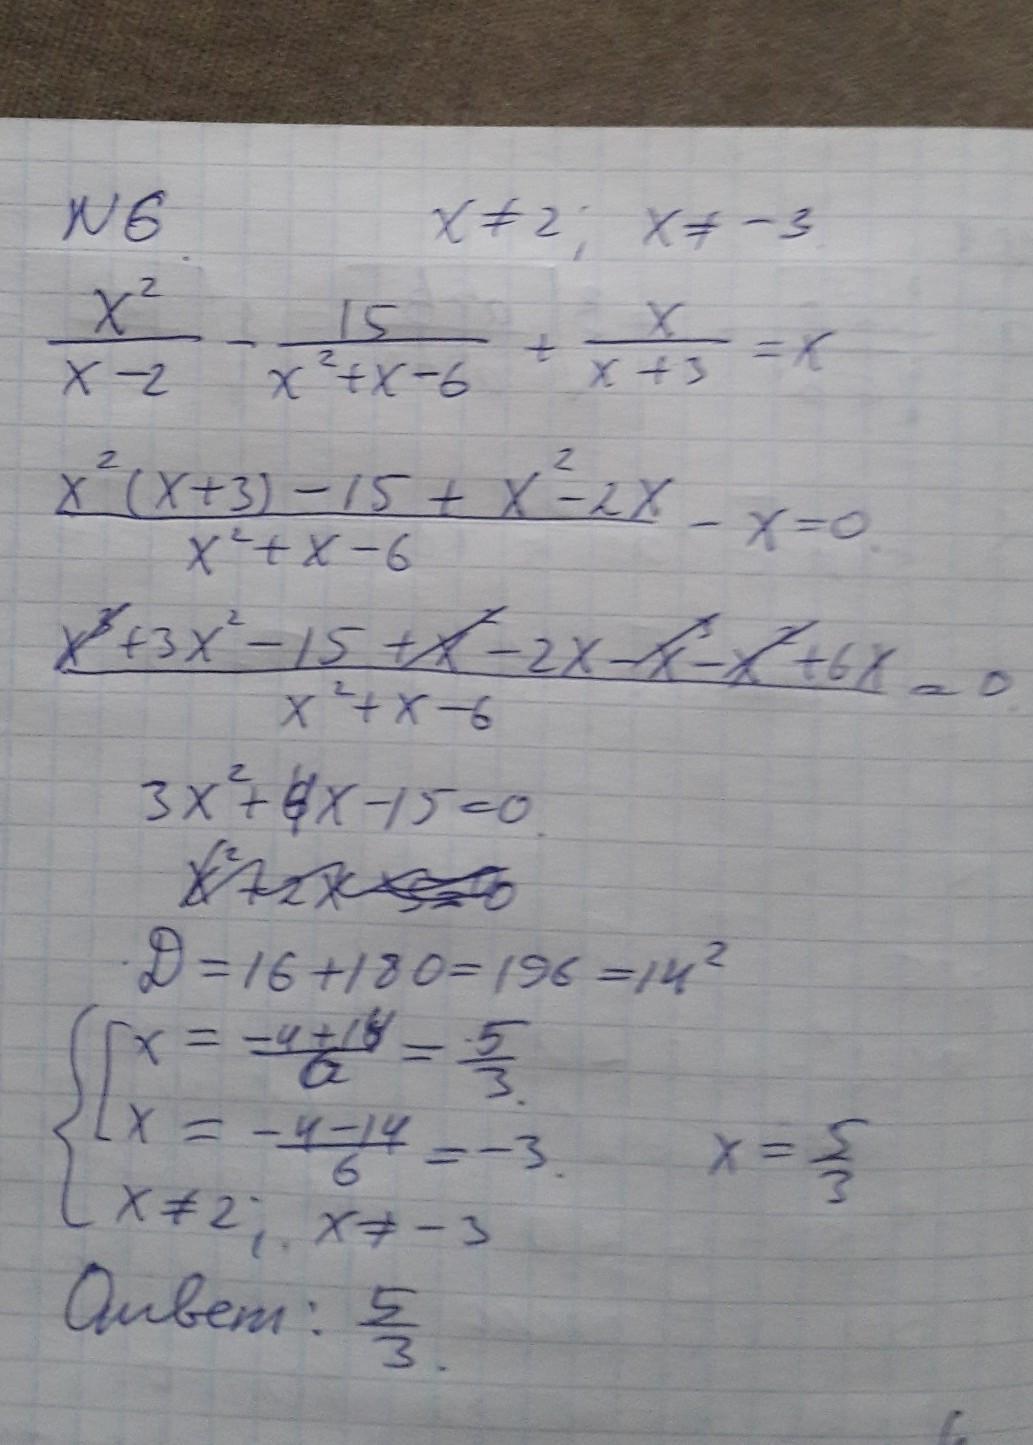 N6 x ≠ 2; x ≠ -3
x²/(x-2) - 15/(x²+x-6) + x/(x+3) = x
(x²(x+3) - 15 + x² - 2x)/(x²+x-6) - x = 0.
(x³ + 3x² - 15 + x² - 2x - x³ - x² + 6x)/(x²+x-6) = 0
3x² + 4x - 15 = 0.
D = 16 + 180 = 196 = 14²
x = (-4+14)/6 = 5/3.
x = (-4-14)/6 = -3. x = 5/3
x ≠ 2; x ≠ -3
Ответ: 5/3.